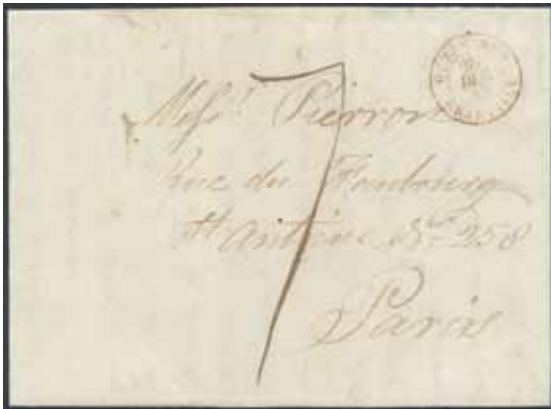 7
Messrs. Pierron
Rue du Faubourg
St Antoine No. 258
Paris